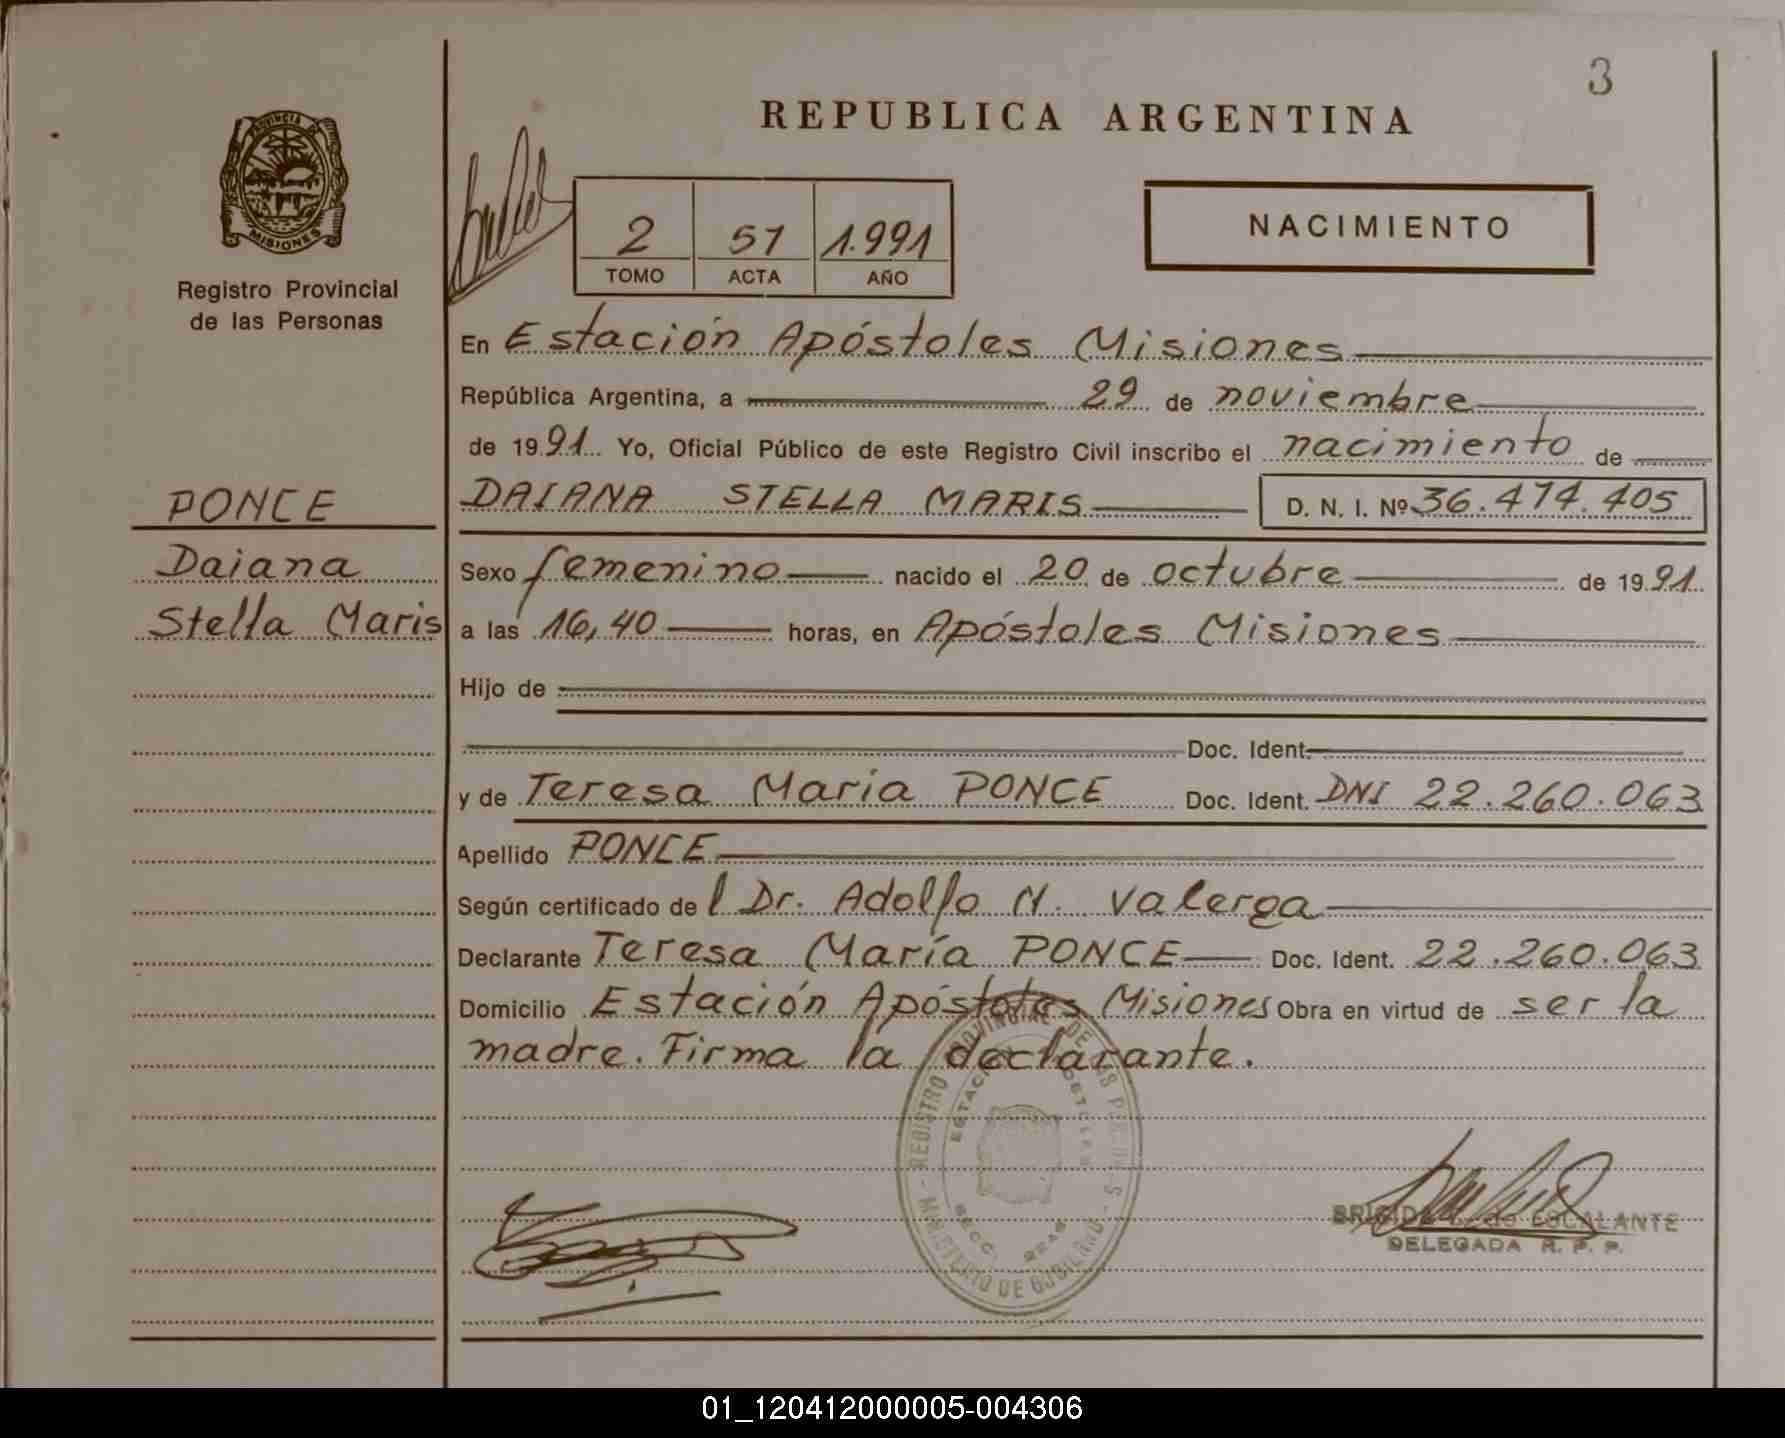 3
REPUBLICA ARGENTINA
PROVINCIA DE
MISIONES
Registro Provincial
de las Personas
2 51 1.991
TOMO ACTA AÑO
NACIMIENTO
En Estación Apóstoles Misiones
República Argentina, a 29 de noviembre
de 1991 Yo, Oficial Público de este Registro Civil inscribo el nacimiento de
PONCE
DAIANA STELLA MARIS D. N. I. Nº 36.474.405
Daiana
Sexo femenino nacido el 20 de octubre de 1991
Stella Maris
a las 16,40 horas, en Apóstoles Misiones
Hijo de
Doc. Ident.
y de Teresa María PONCE Doc. Ident. DNI 22.260.063
Apellido PONCE
Según certificado del Dr. Adolfo N. Valerga
Declarante Teresa María PONCE Doc. Ident. 22.260.063
Domicilio Estación Apóstoles Misiones Obra en virtud de ser la
madre. Firma la declarante.
REGISTRO PROVINCIAL DE LAS PERSONAS
MINISTERIO DE GOBIERNO
ESTACION APOSTOLES
SECC.
ESCALANTE
DELEGADA R. P. P.
01_120412000005-004306